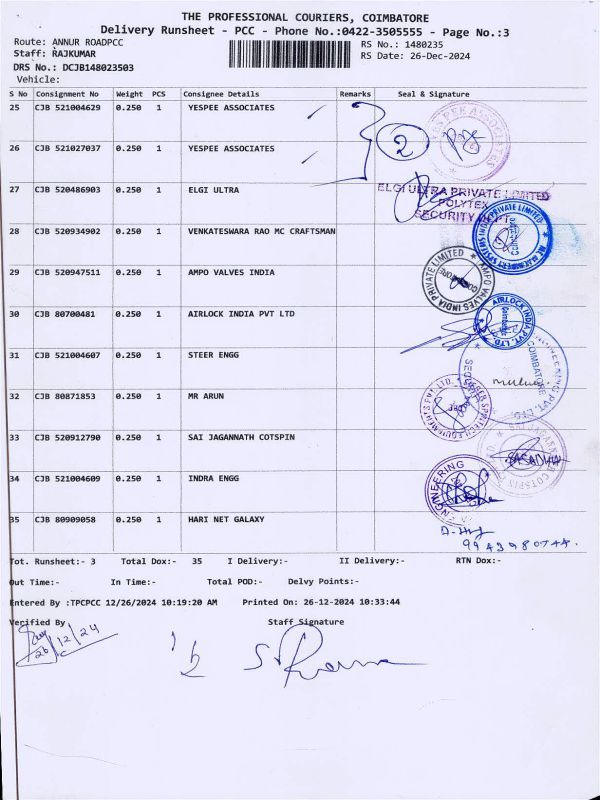 THE PROFESSIONAL COURIERS, COIMBATORE
Delivery Runsheet - PCC - Phone No.:0422-3505555 - Page No.:3
Route: ANNUR ROADPCC
RS No.: 1480235
Staff: RAJKUMAR
RS Date: 26-Dec-2024
DRS No.: DCJB148023503
Vehicle:
S No Consignment No Weight PCS Consignee Details Remarks Seal & Signature
25 CJB 521004629 0.250 1 YESPEE ASSOCIATES
2
26 CJB 521027037 0.250 1 YESPEE ASSOCIATES
27 CJB 520486903 0.250 1 ELGI ULTRA
ELGI ULTRA PRIVATE LIMITED
POLYTEX
SECURITY
28 CJB 520934902 0.250 1 VENKATESWARA RAO MC CRAFTSMAN
29 CJB 520947511 0.250 1 AMPO VALVES INDIA
AMPO VALVES INDIA PRIVATE LIMITED
30 CJB 80700481 0.250 1 AIRLOCK INDIA PVT LTD
AIRLOCK INDIA PVT. LTD.
31 CJB 521004607 0.250 1 STEER ENGG
COIMBATORE
32 CJB 80871853 0.250 1 MR ARUN
33 CJB 520912790 0.250 1 SAI JAGANNATH COTSPIN
SASADHAR
34 CJB 521004609 0.250 1 INDRA ENGG
ENGINEERING
35 CJB 80909058 0.250 1 HARI NET GALAXY
Tot. Runsheet:- 3 Total Dox:- 35 I Delivery:- II Delivery:- RTN Dox:-
Out Time:- In Time:- Total POD:- Delvy Points:-
Entered By :TPCPCC 12/26/2024 10:19:20 AM Printed On: 26-12-2024 10:33:44
Verified By Staff Signature
26/12/24